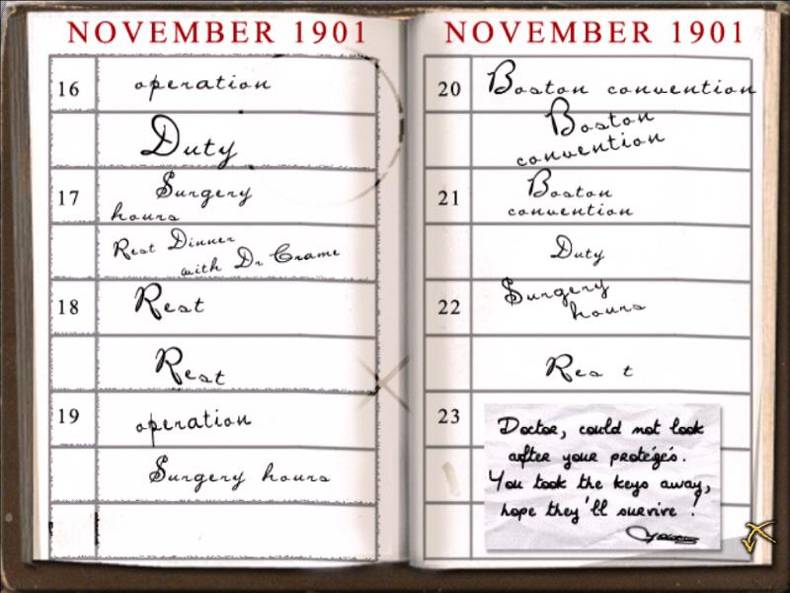 NOVEMBER 1901
16 operation
Duty
17 Surgery
hours
Rest Dinner
with Dr Crame
18 Rest
Rest
19 operation
Surgery hours
NOVEMBER 1901
20 Boston convention
Boston
convention
21 Boston
convention
Duty
22 Surgery
hours
Res t
23
Doctor, could not look
after your protégés.
You took the keys away,
hope they'll survive !